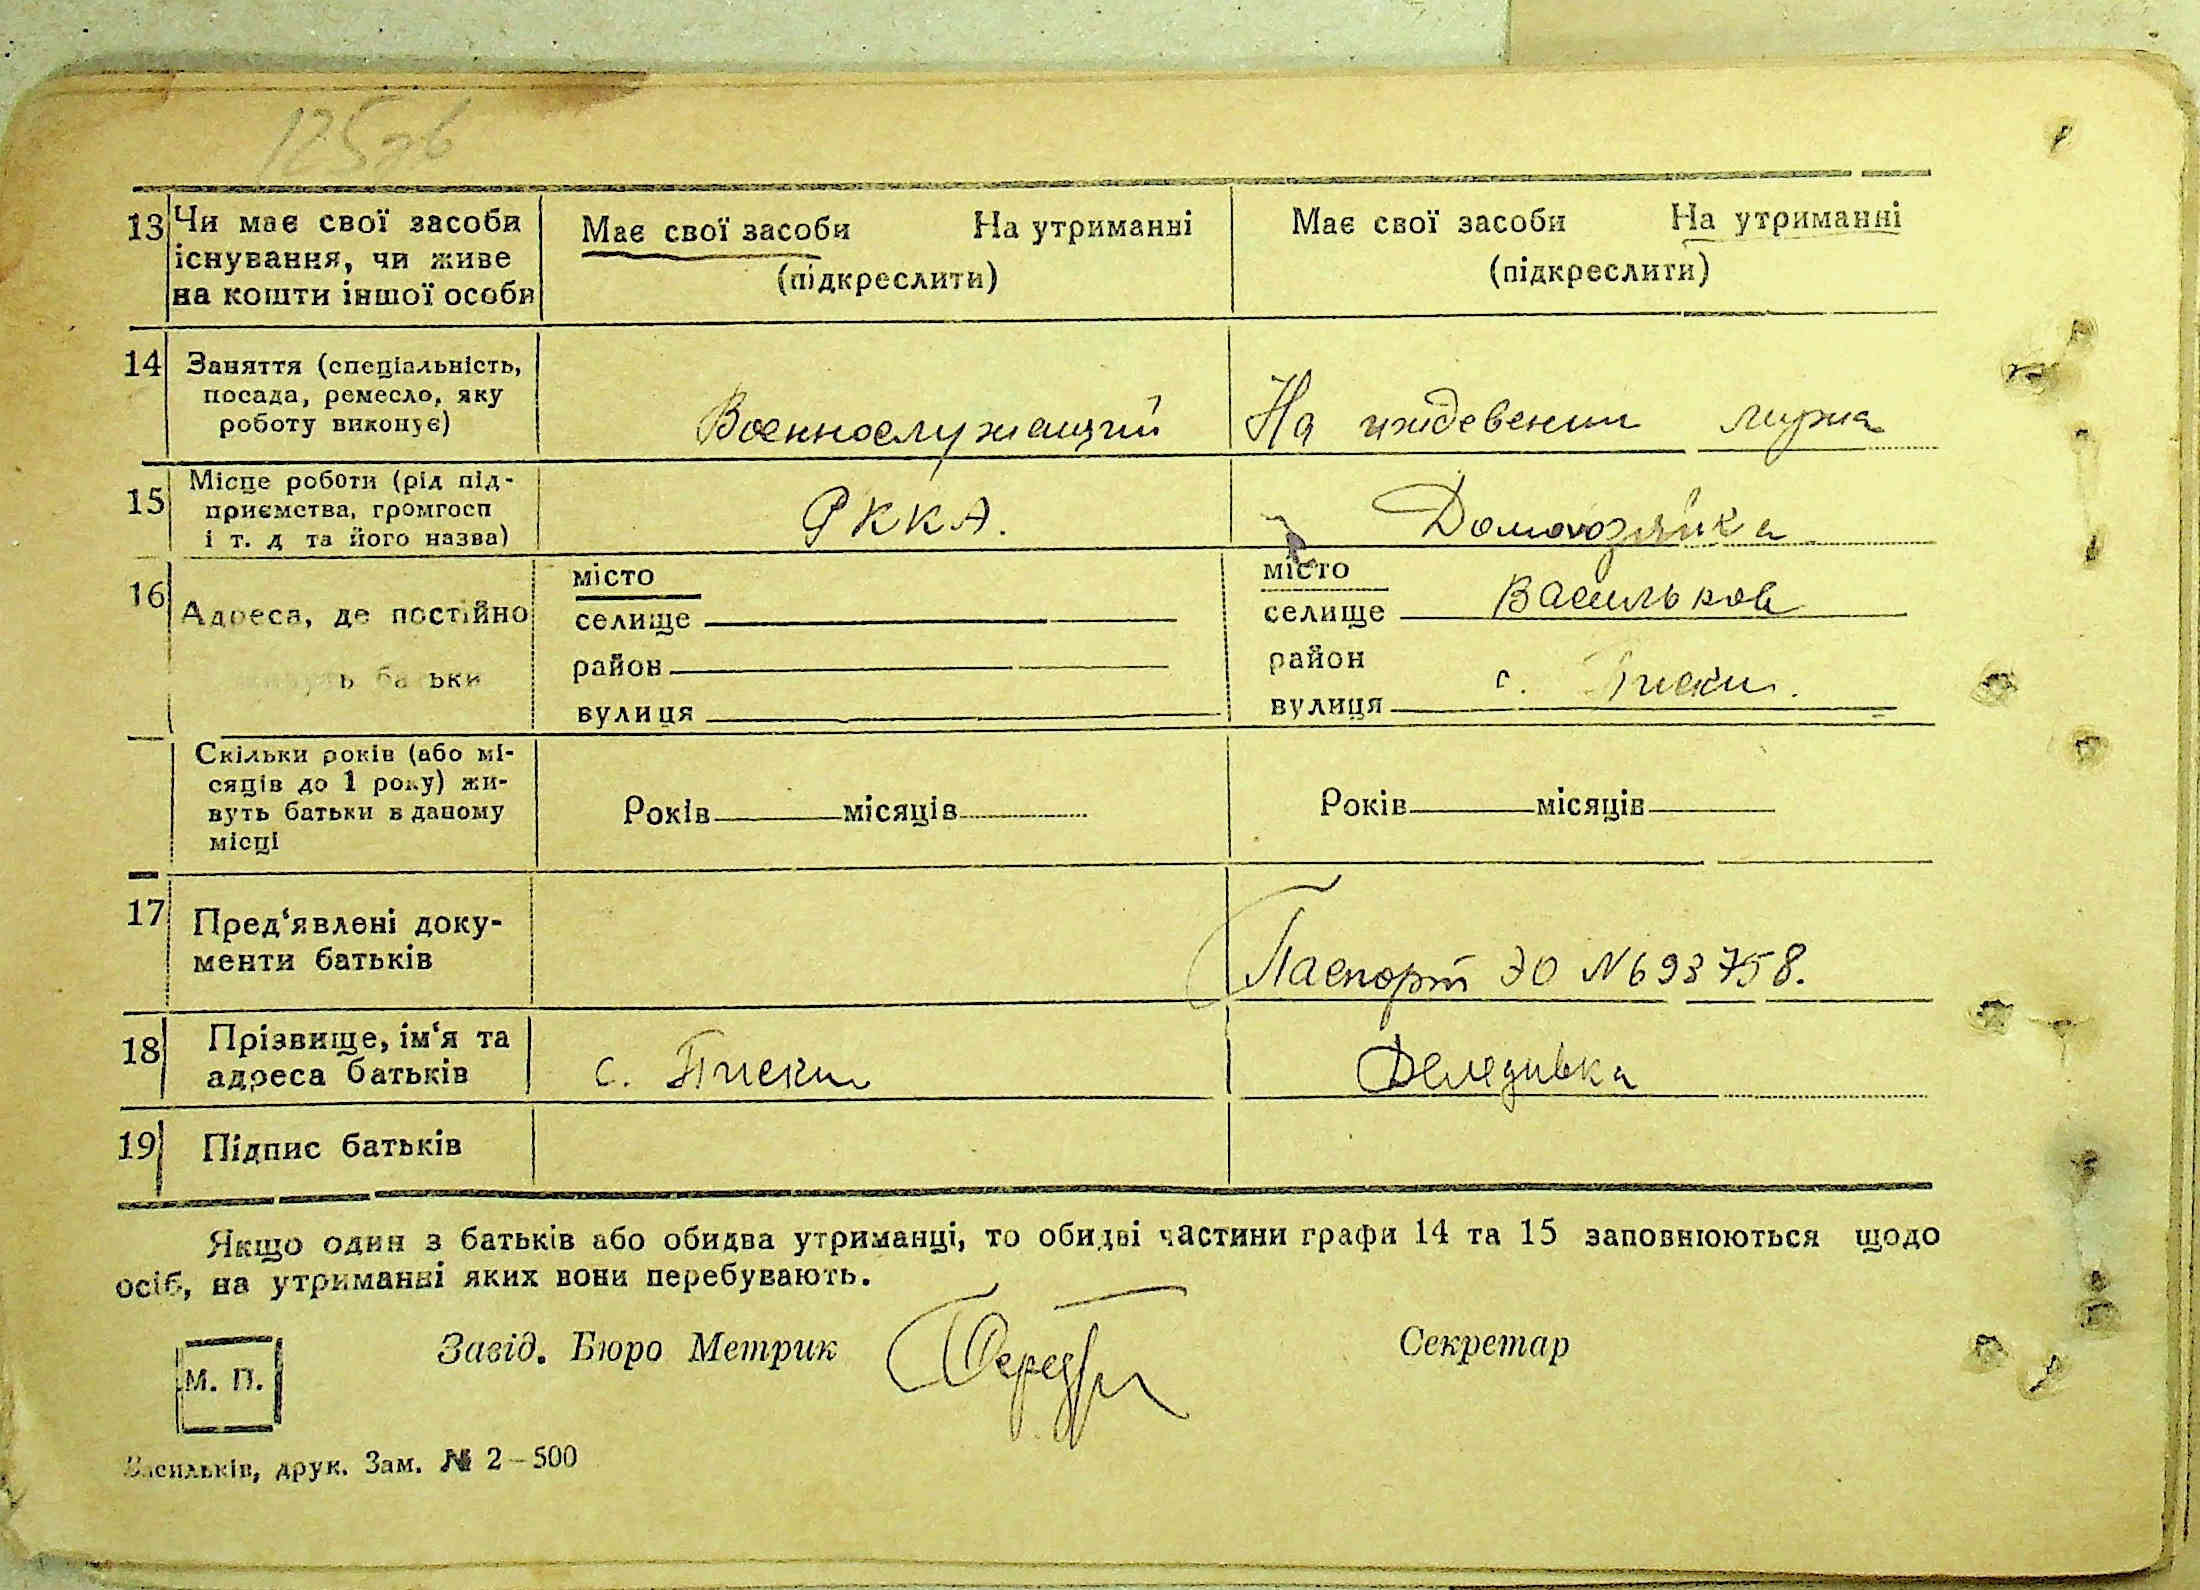 125зв
13 Чи має свої засоби існування, чи живе на кошти іншої особи
Має свої засоби На утриманні
(підкреслити)
Має свої засоби На утриманні
(підкреслити)
14 Заняття (спеціальність,
посада, ремесло, яку
роботу виконує)
Военнослужащий
На иждевении мужа
15 Місце роботи (рід під-
приємства, громгосп
і т. д та його назва)
РККА.
Домохозяйка
16 Адреса, де постійно
живуть батьки
місто
селище
район
вулиця
місто
селище Васильков
район
вулиця с. Писки.
Скільки років (або мі-
сяців до 1 року) жи-
вуть батьки в даному
місці
Років місяців
Років місяців
17 Пред‘явлені доку-
менти батьків
Паспорт ЭО №693758.
18 Прізвище, ім‘я та
адреса батьків
с. Писки
19 Підпис батьків
Якщо один з батьків або обидва утриманці, то обидві частини графи 14 та 15 заповнюються щодо
осіб, на утриманні яких вони перебувають.
М. П.
Завід. Бюро Метрик
Секретар
Васильків, друк. Зам. № 2–500